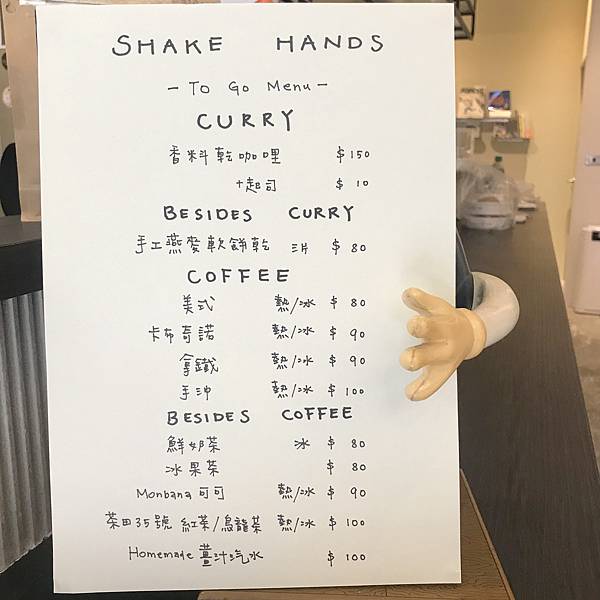 SHAKE HANDS
- To Go Menu -
CURRY
香料乾咖哩 $150
+起司 $ 10
BESIDES CURRY
手工燕麥軟餅乾 三片 $ 80
COFFEE
美式 熱/冰 $ 80
卡布奇諾 熱/冰 $ 90
拿鐵 熱/冰 $ 90
手沖 熱/冰 $ 100
BESIDES COFFEE
鮮奶茶 冰 $ 80
冰果茶 $ 80
Monbana 可可 熱/冰 $ 90
茶田35號 紅茶/烏龍茶 熱/冰 $ 100
Homemade 薑汁汽水 $ 100